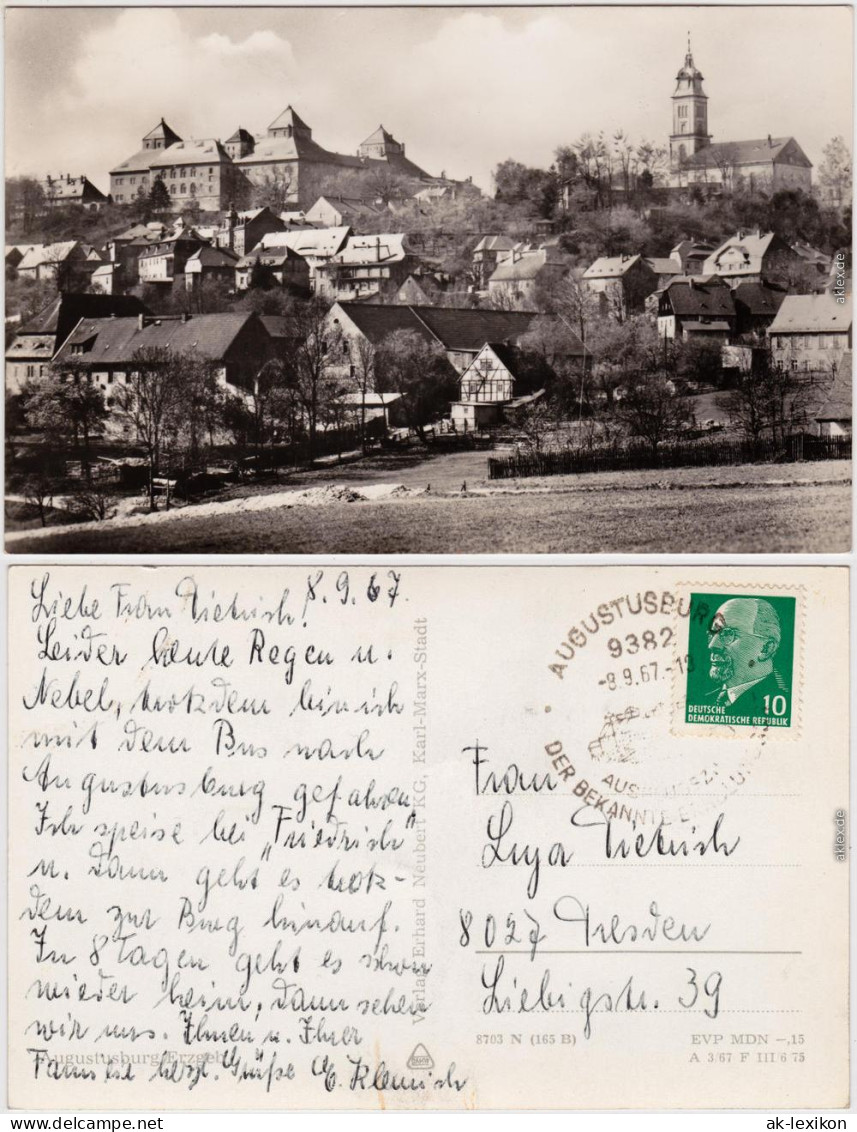 Liebe Frau Dietrich! 8.9.67.
Leider heute Regen u.
Nebel, trotzdem bin ich
mit dem Bus nach
Augustusburg gefahren,
Ich speise bei „Friedrich“
u. dann geht es trotz-
dem zur Burg hinauf.
In 8 Tagen geht es schon
wieder heim, dann sehen
wir uns. Ihnen u. Ihrer
Familie herzl. Grüße
Augustusburg/Erzgeb.
Verlag Erhard Neubert KG, Karl-Marx-Stadt
AUGUSTUSBURG
9382
-8.9.67.-18
DER BEKANNTE
DEUTSCHE 10
DEMOKRATISCHE REPUBLIK
Frau
Dietrich
8027 Dresden
Liebigstr. 39
8703 N (165 B) EVP MDN —,15
A 3/67 F III/6/75
aklex.de
aklex.de
www.AnsichtskartenVersand.com
ak-lexikon